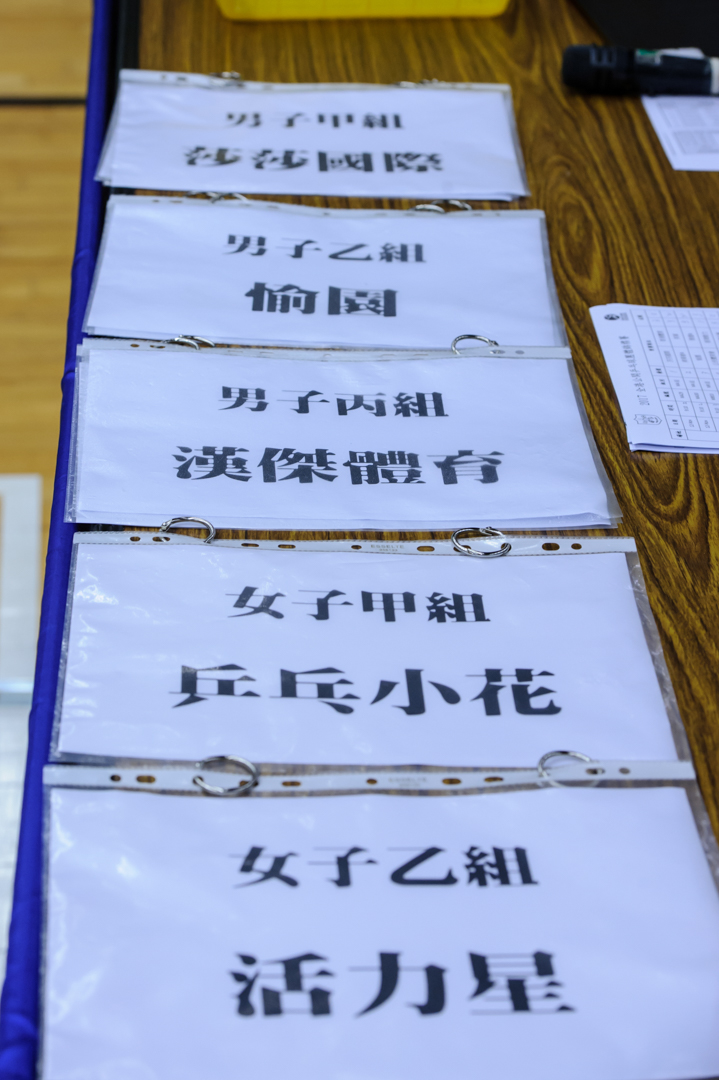 男子甲組
莎莎國際
男子乙組
愉園
男子丙組
漢傑體育
女子甲組
乒乓小花
女子乙組
活力星